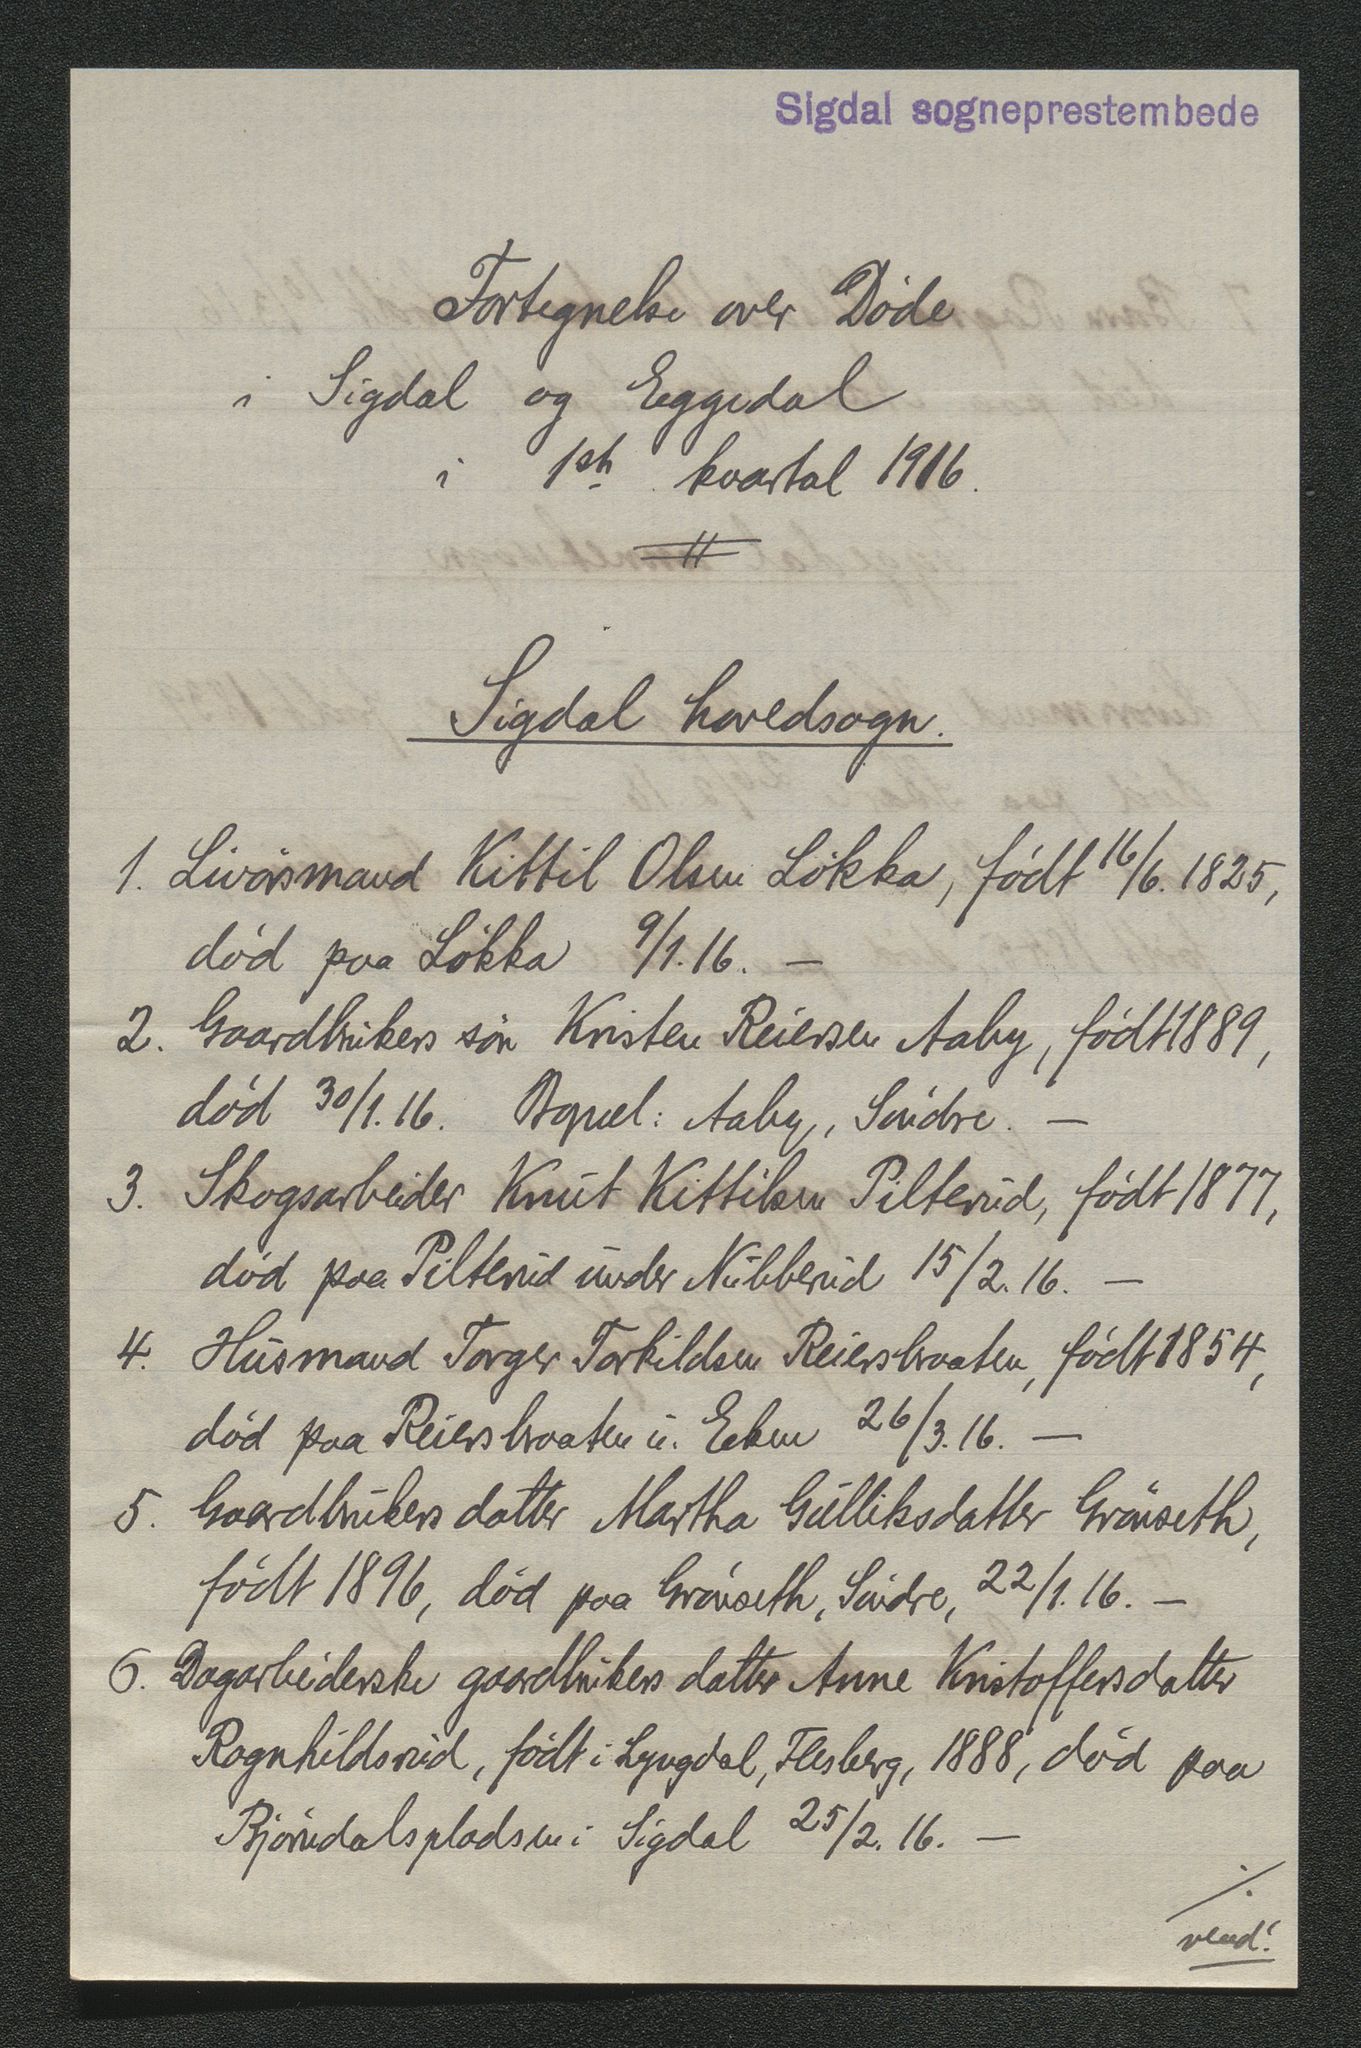 Sigdal sogneprestembede
Fortegnelse over Døde
i Sigdal og Eggedal
i 1ste kvartal 1916.
Sigdal hovedsogn.
1. Livørsmand Kittil Olsen Løkka, født 16/6. 1825,
død paa Løkka 9/1. 16. —
2. Gaardbrukers søn Kristen Reiersen Aaby, født 1889,
død 30/1. 16. Bopæl: Aaby, Søndre. —
3. Skogsarbeider Knut Kittilsen Pilterud, født 1877,
død paa Pilterud under Nubberud 15/2. 16. —
4. Husmand Torger Torkildsen Reiersbraaten, født 1854,
død paa Reiersbraaten u. Eken 26/3. 16. —
5. Gaardbrukers datter Martha Gulliksdatter Grønseth,
født 1896, død paa Grønseth, Søndre, 22/1. 16. —
6. Dagarbeiderske gaardbrukers datter Anne Kristoffersdatter
Ragnhildsrud, født i Lyngdal, Flesberg, 1888, død paa
Bjørndalspladsen i Sigdal 25/2. 16. —
./.
vend!